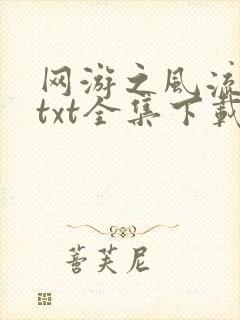 网游之风流
txt全集下载
菩芙尼